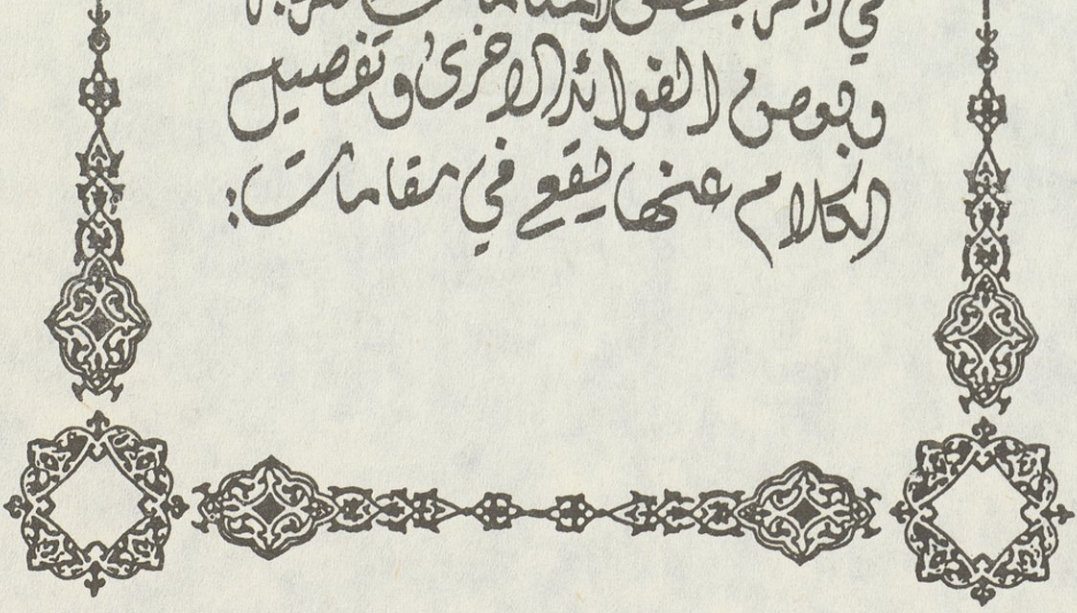 في ذكر بعض
و بعض الفوائد الاخرى و تفصيل
الكلام عنها يقع في مقامات: